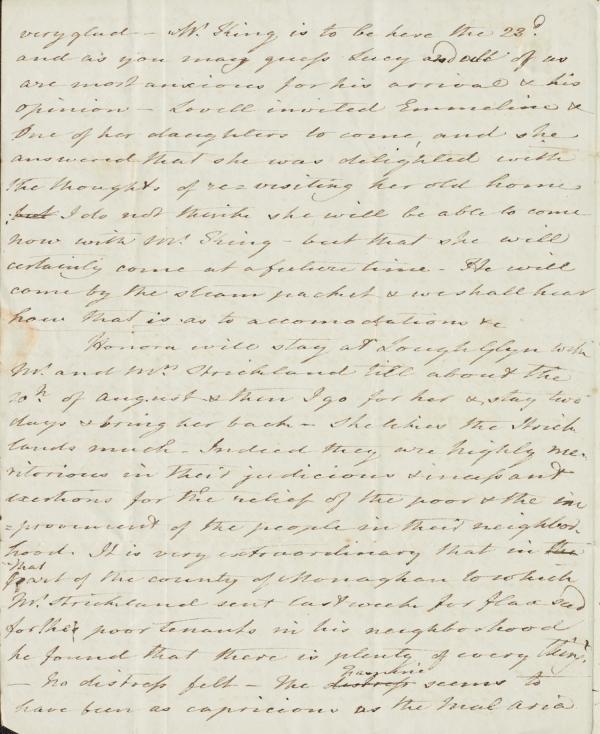 very glad – Mr. King is to be here the 23d.
and as you may guess Lucy and all of us
are most anxious for his arrival & his
opinion – Lovell invited Emmeline &
one of her daughters to come, and she
answered that she was delighted with
the thoughts of re=visiting her old home
but I do not think she will be able to come
now with Mr. King – but that she will
certainly come at a future time – He will
come by the steam packet & we shall hear
how that is as to accomodations &c
Honora will stay at Lough Glyn with
Mr. and Mrs. Strickland till about the
10th of August & then I go for her & stay two
days & bring her back – She likes the Strick
lands much – Indeed they are highly me-
ritorious in their judicious & incessant
exertions for the relief of the poor & the im
=provement of the people in their neighbor
hood. It is very extraordinary that in
that
part of the county of Monaghan to which
Mr. Strickland sent last week for flax seed
for the poor tenants in his neighborhood
he found that there is plenty of every thing.
famine
– No distress felt – The distress seems to
have been as capricious as the Mal aria